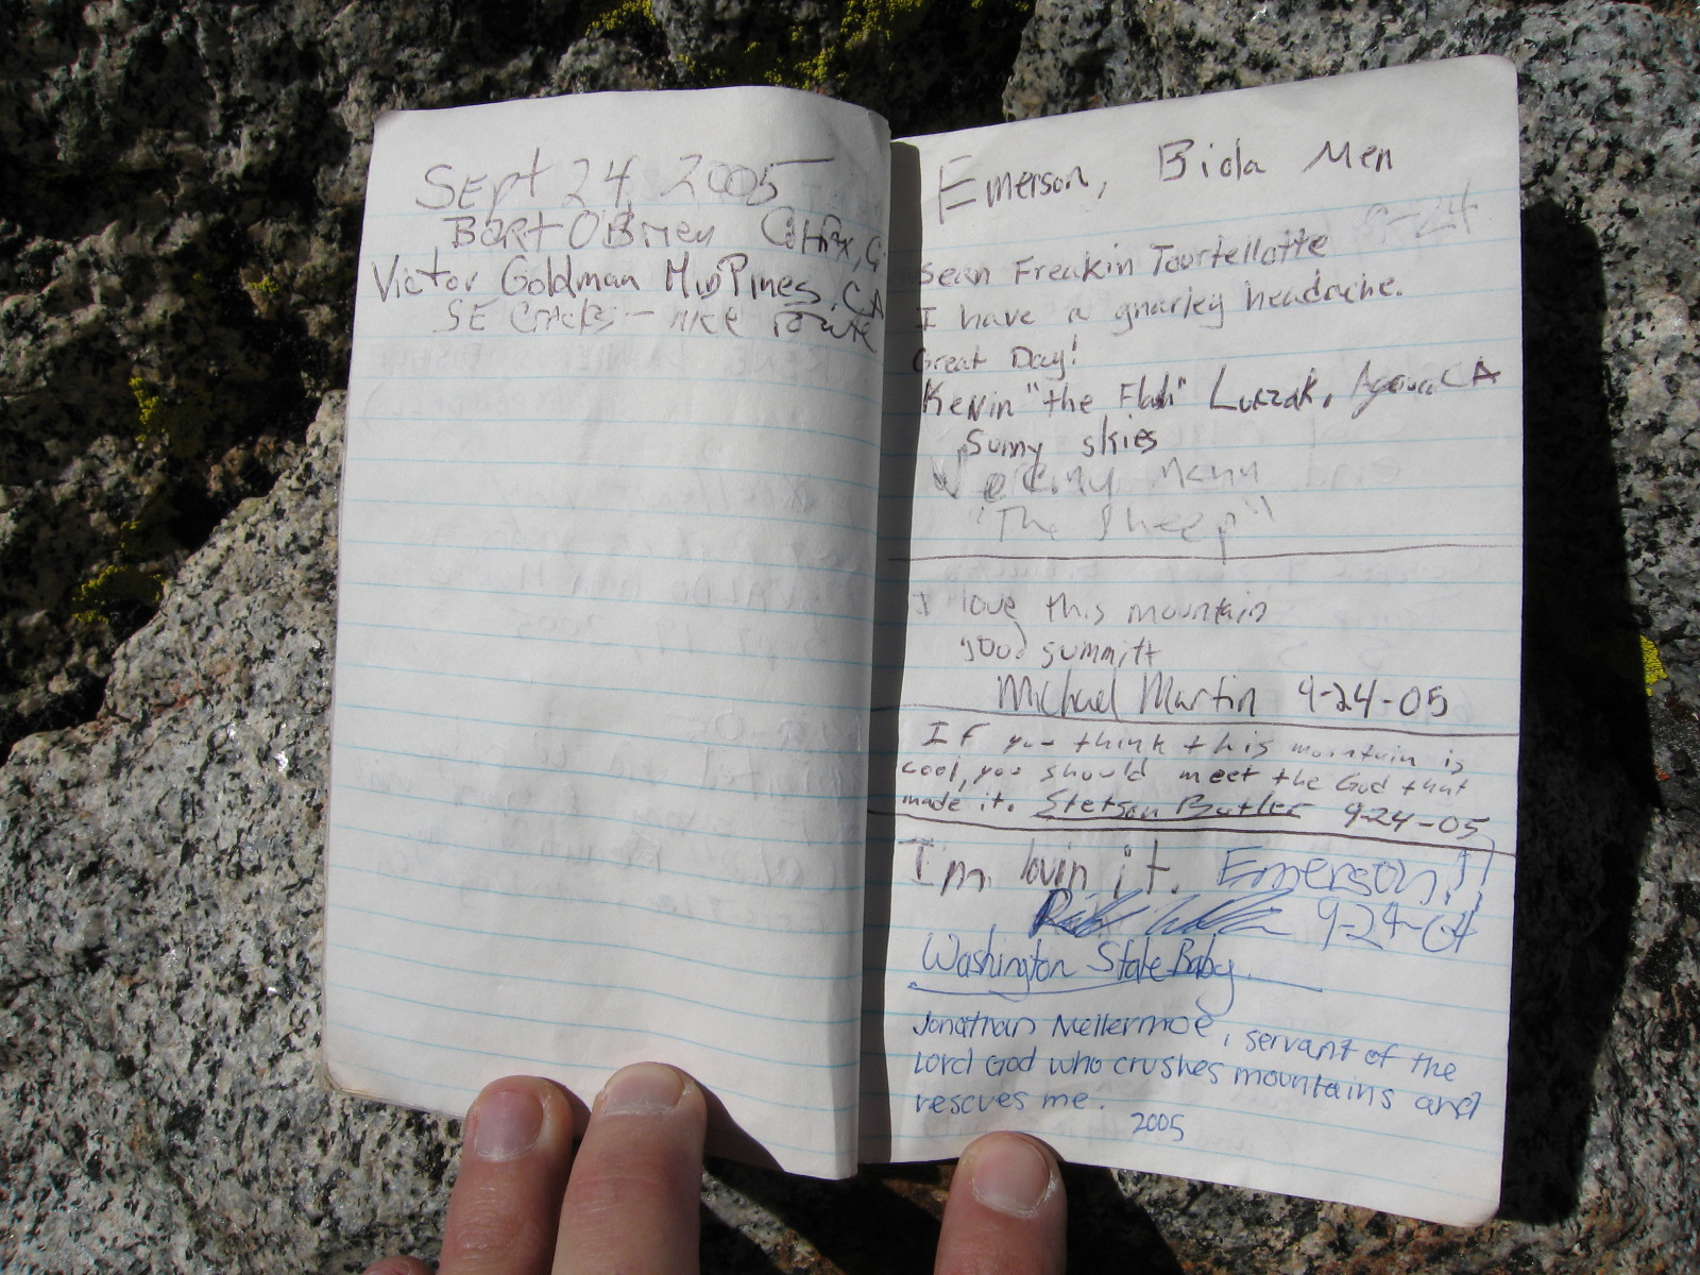 Sept 24, 2005
Bart O'Brien Colfax, C
Victor Goldman Mid Pines, CA
SE Cracks - nice route
Emerson, Biola Men
9-24
Sean Freakin Tourtellotte
I have a gnarley headache.
Great Day!
Kevin "the Flash" Luczak, Agoura CA
Sunny skies
"The Sheep"
I love this mountain
good summitt
Michael Martin 9-24-05
If you think this mountain is
cool, you should meet the God that
made it. Stetson Butler 9-24-05
I'm lovin it. Emerson!!
9-24-04
Washington State Baby.
Jonathan Mellermoe, servant of the
Lord God who crushes mountains and
rescues me.
2005